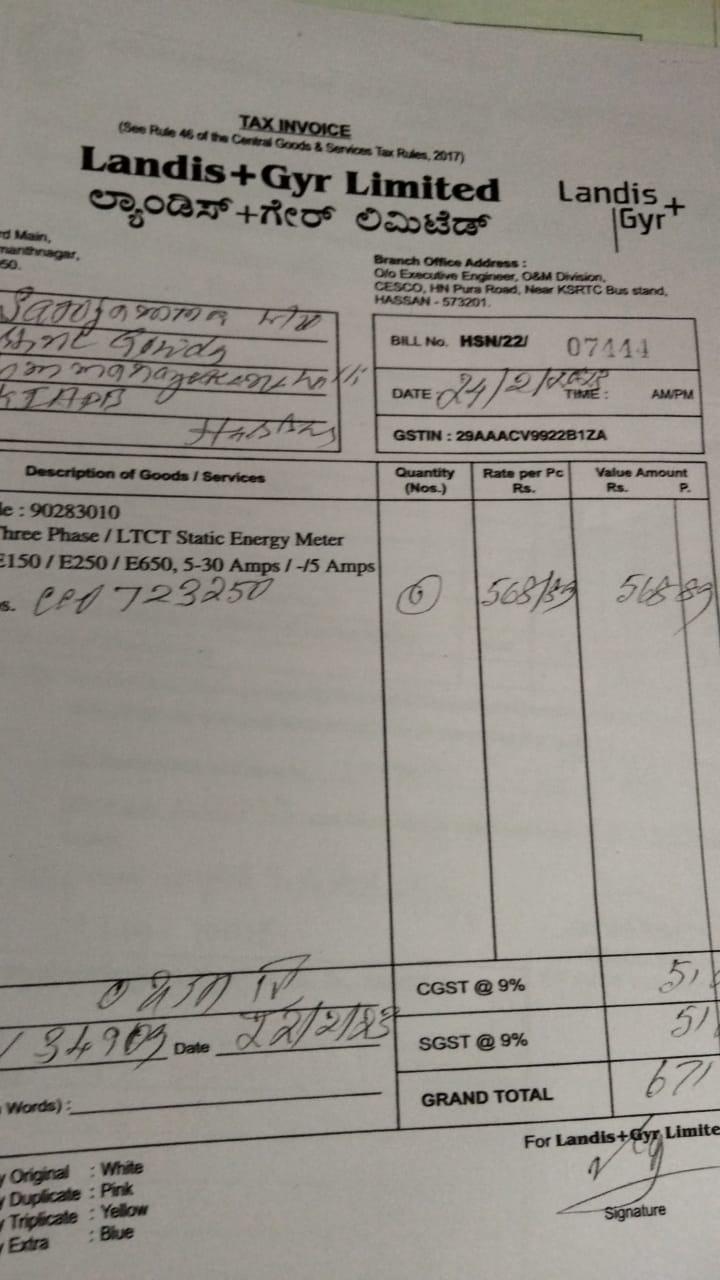 TAX INVOICE
(See Rule 46 of the Central Goods & Services Tax Rules, 2017)
Landis+Gyr Limited
ಲ್ಯಾಂಡಿಸ್+ಗೇರ್ ಲಿಮಿಟೆಡ್
Landis
Gyr+
rd Main,
manthnagar,
50.
Branch Office Address :
O/o Executive Engineer, O&M Division,
CESCO, HN Pura Road, Near KSRTC Bus stand,
HASSAN - 573201.
Gowda
KIADB
Hassan
BILL No. HSN/22/ 07444
DATE 24/2/2023 TIME : AM/PM
GSTIN : 29AAACV9922B1ZA
Description of Goods / Services Quantity (Nos.) Rate per Pc Rs. Value Amount Rs. P.
de : 90283010
Three Phase / LTCT Static Energy Meter
E150 / E250 / E650, 5-30 Amps / -/5 Amps
s. 723250 568/89 568 89
CGST @ 9% 51
34903 Date 22/2/23
SGST @ 9% 51
Words) :
GRAND TOTAL 671
For Landis+Gyr Limite
y Original : White
y Duplicate : Pink
y Triplicate : Yellow
y Extra : Blue
Signature